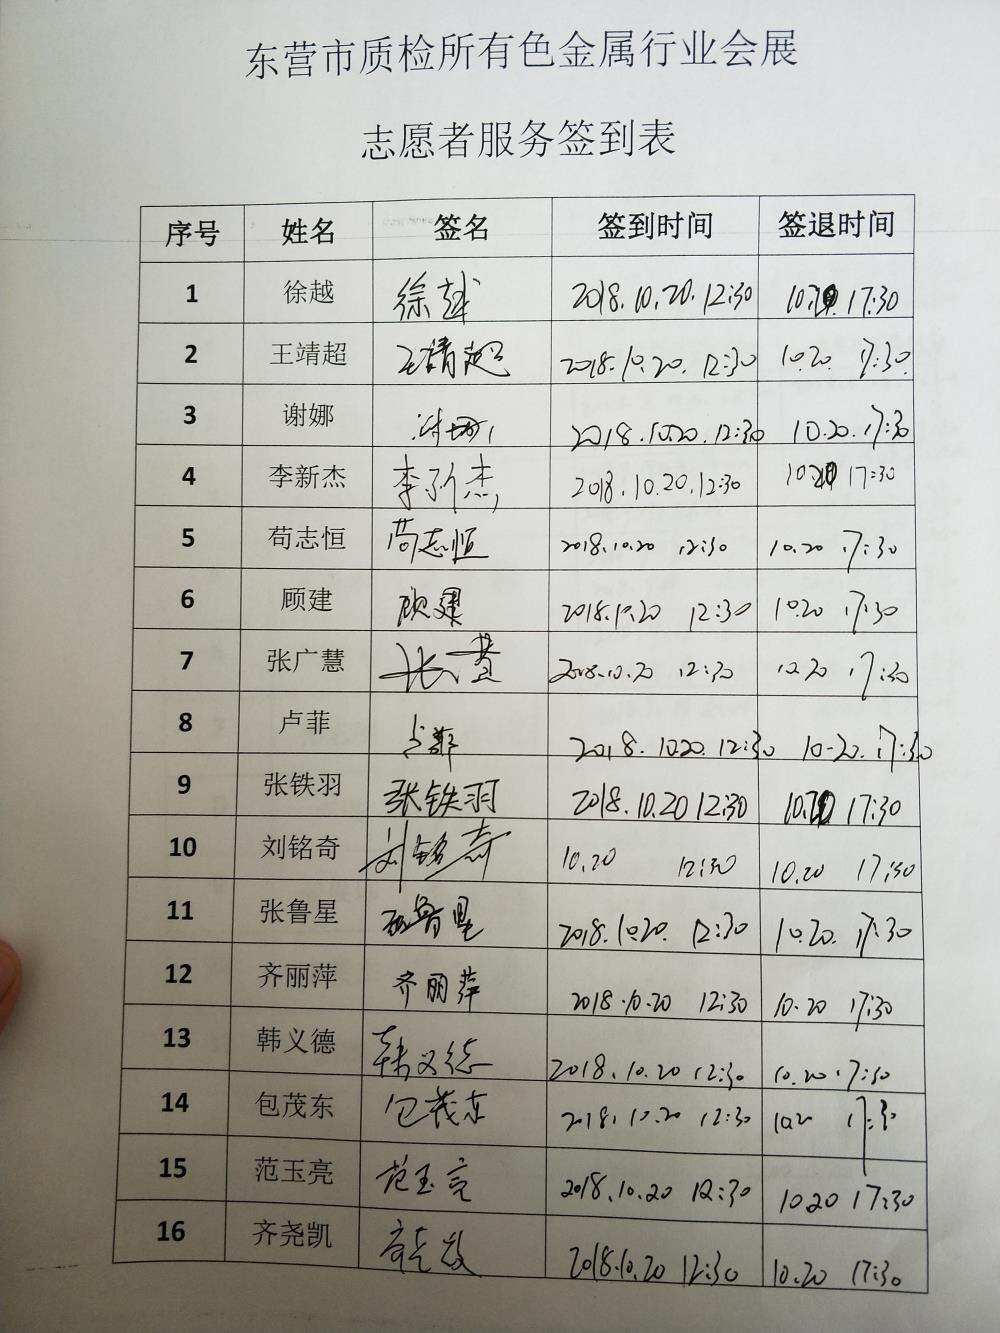 东营市质检所有色金属行业会展
志愿者服务签到表
序号 姓名 签名 签到时间 签退时间
1 徐越 徐越 2018.10.20.12:30 10. 17:30
2 王靖超 王靖超 2018.10.20. 12:30 10.20. 17:30.
3 谢娜 谢娜 2018.10.20.12:30 10.20.17:30
4 李新杰 李新杰 2018.10.20.12:30 10.20 17:30
5 苟志恒 苟志恒 2018.10.20 12:30 10.20 17:30
6 顾建 顾建 2018.10.20 12:30 10.20 17:30
7 张广慧 张广慧 2018.10.20 12:30 10.20 17:30
8 卢菲 卢菲 2018.10.20.12:30 10-20.17:30
9 张铁羽 张铁羽 2018.10.20 12:30 10.20 17:30
10 刘铭奇 刘铭奇 10.20 12:30 10.20 17:30
11 张鲁星 张鲁星 2018.10.20. 12:30 10.20. 17:30
12 齐丽萍 齐丽萍 2018.10.20 12:30 10.20 17:30
13 韩义德 韩义德 2018.10.20 12:30 10.20.17:30
14 包茂东 包茂东 2018.10.20 12:30 10.20 17:30
15 范玉亮 范玉亮 2018.10.20 12:30 10.20 17:30
16 齐尧凯 2018.10.20 12:30 10.20 17:30